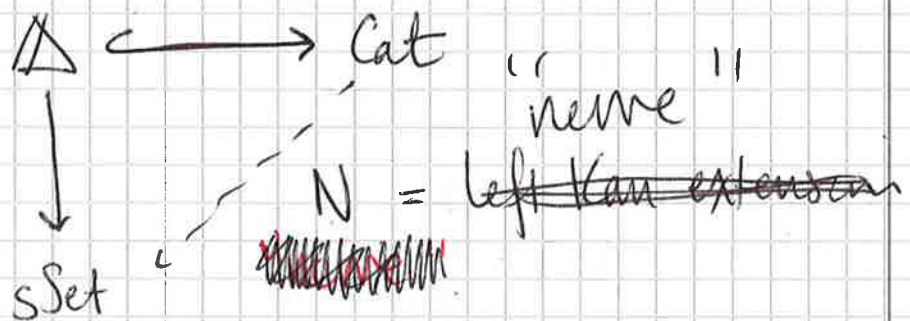 Δ ↪ Cat
"nerve"
N = left Kan extension
sSet